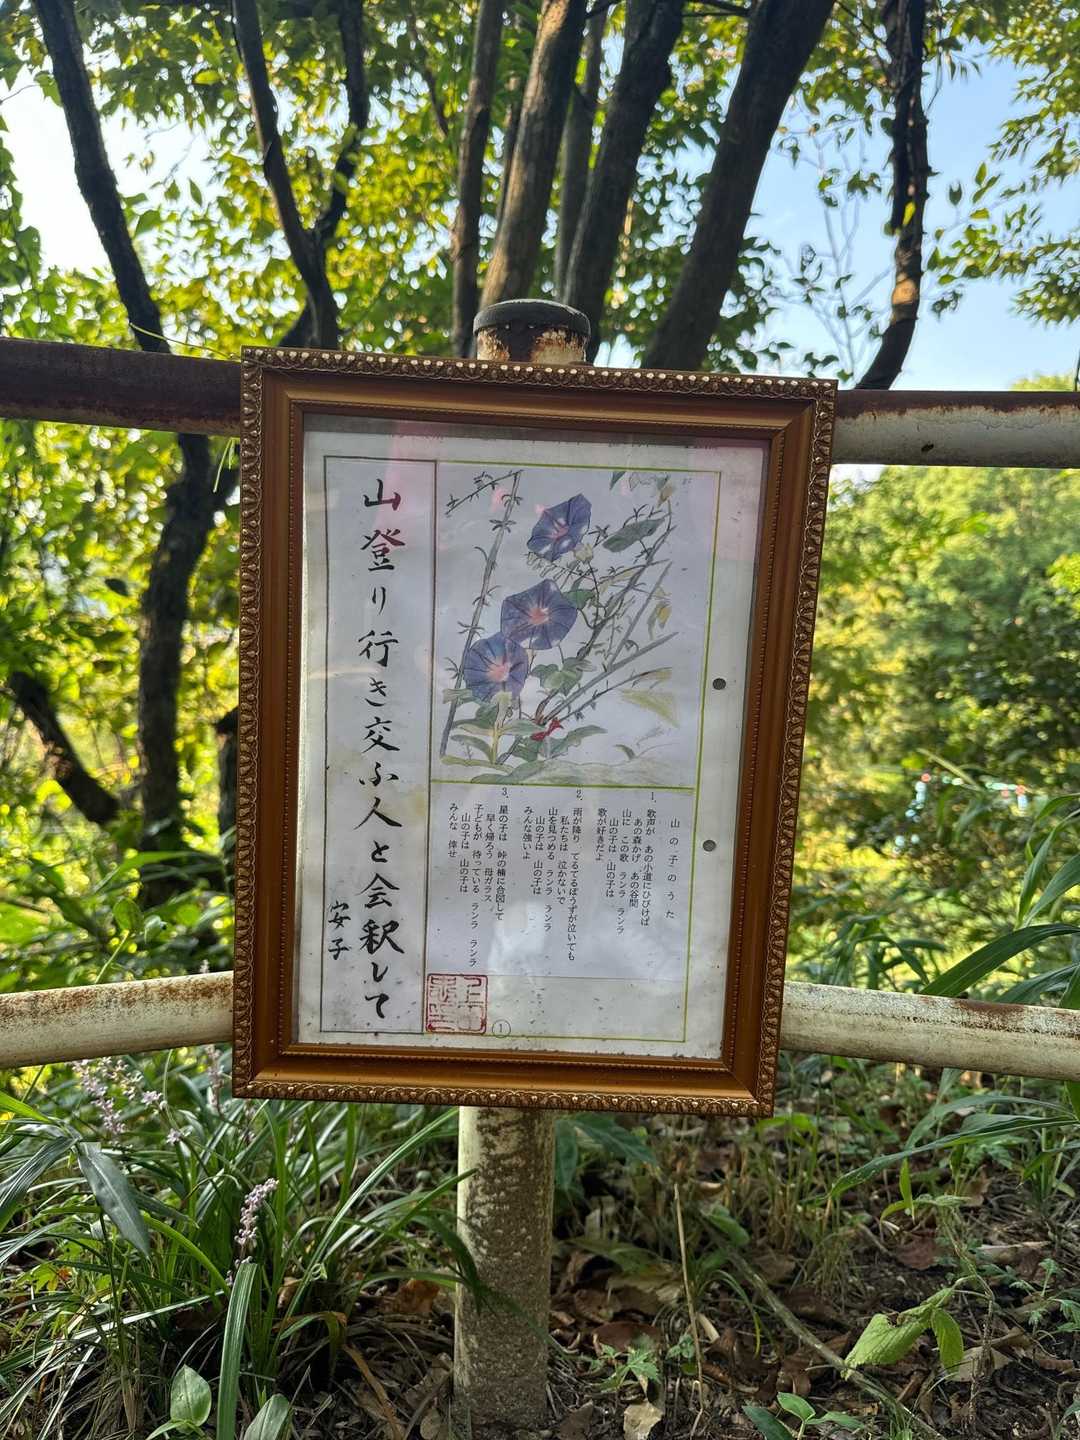 山の子のうた
1. 歌声が あの小道にひびけば
あの森かげ あの谷間
山に この歌 ランラ ランラ
山の子は 山の子は
歌が好きだよ
2. 雨が降り てるてるぼうずが泣いても
私たちは 泣かないで
山を見つめる ランラ ランラ
山の子は 山の子は
みんな強いよ
3. 星の子は 峠の楠に合図して
早く帰ろう 母ガラス
子どもが 待っている ランラ ランラ
山の子は 山の子は
みんな 倖せ
山登り行き交ふ人と会釈して
安子
①